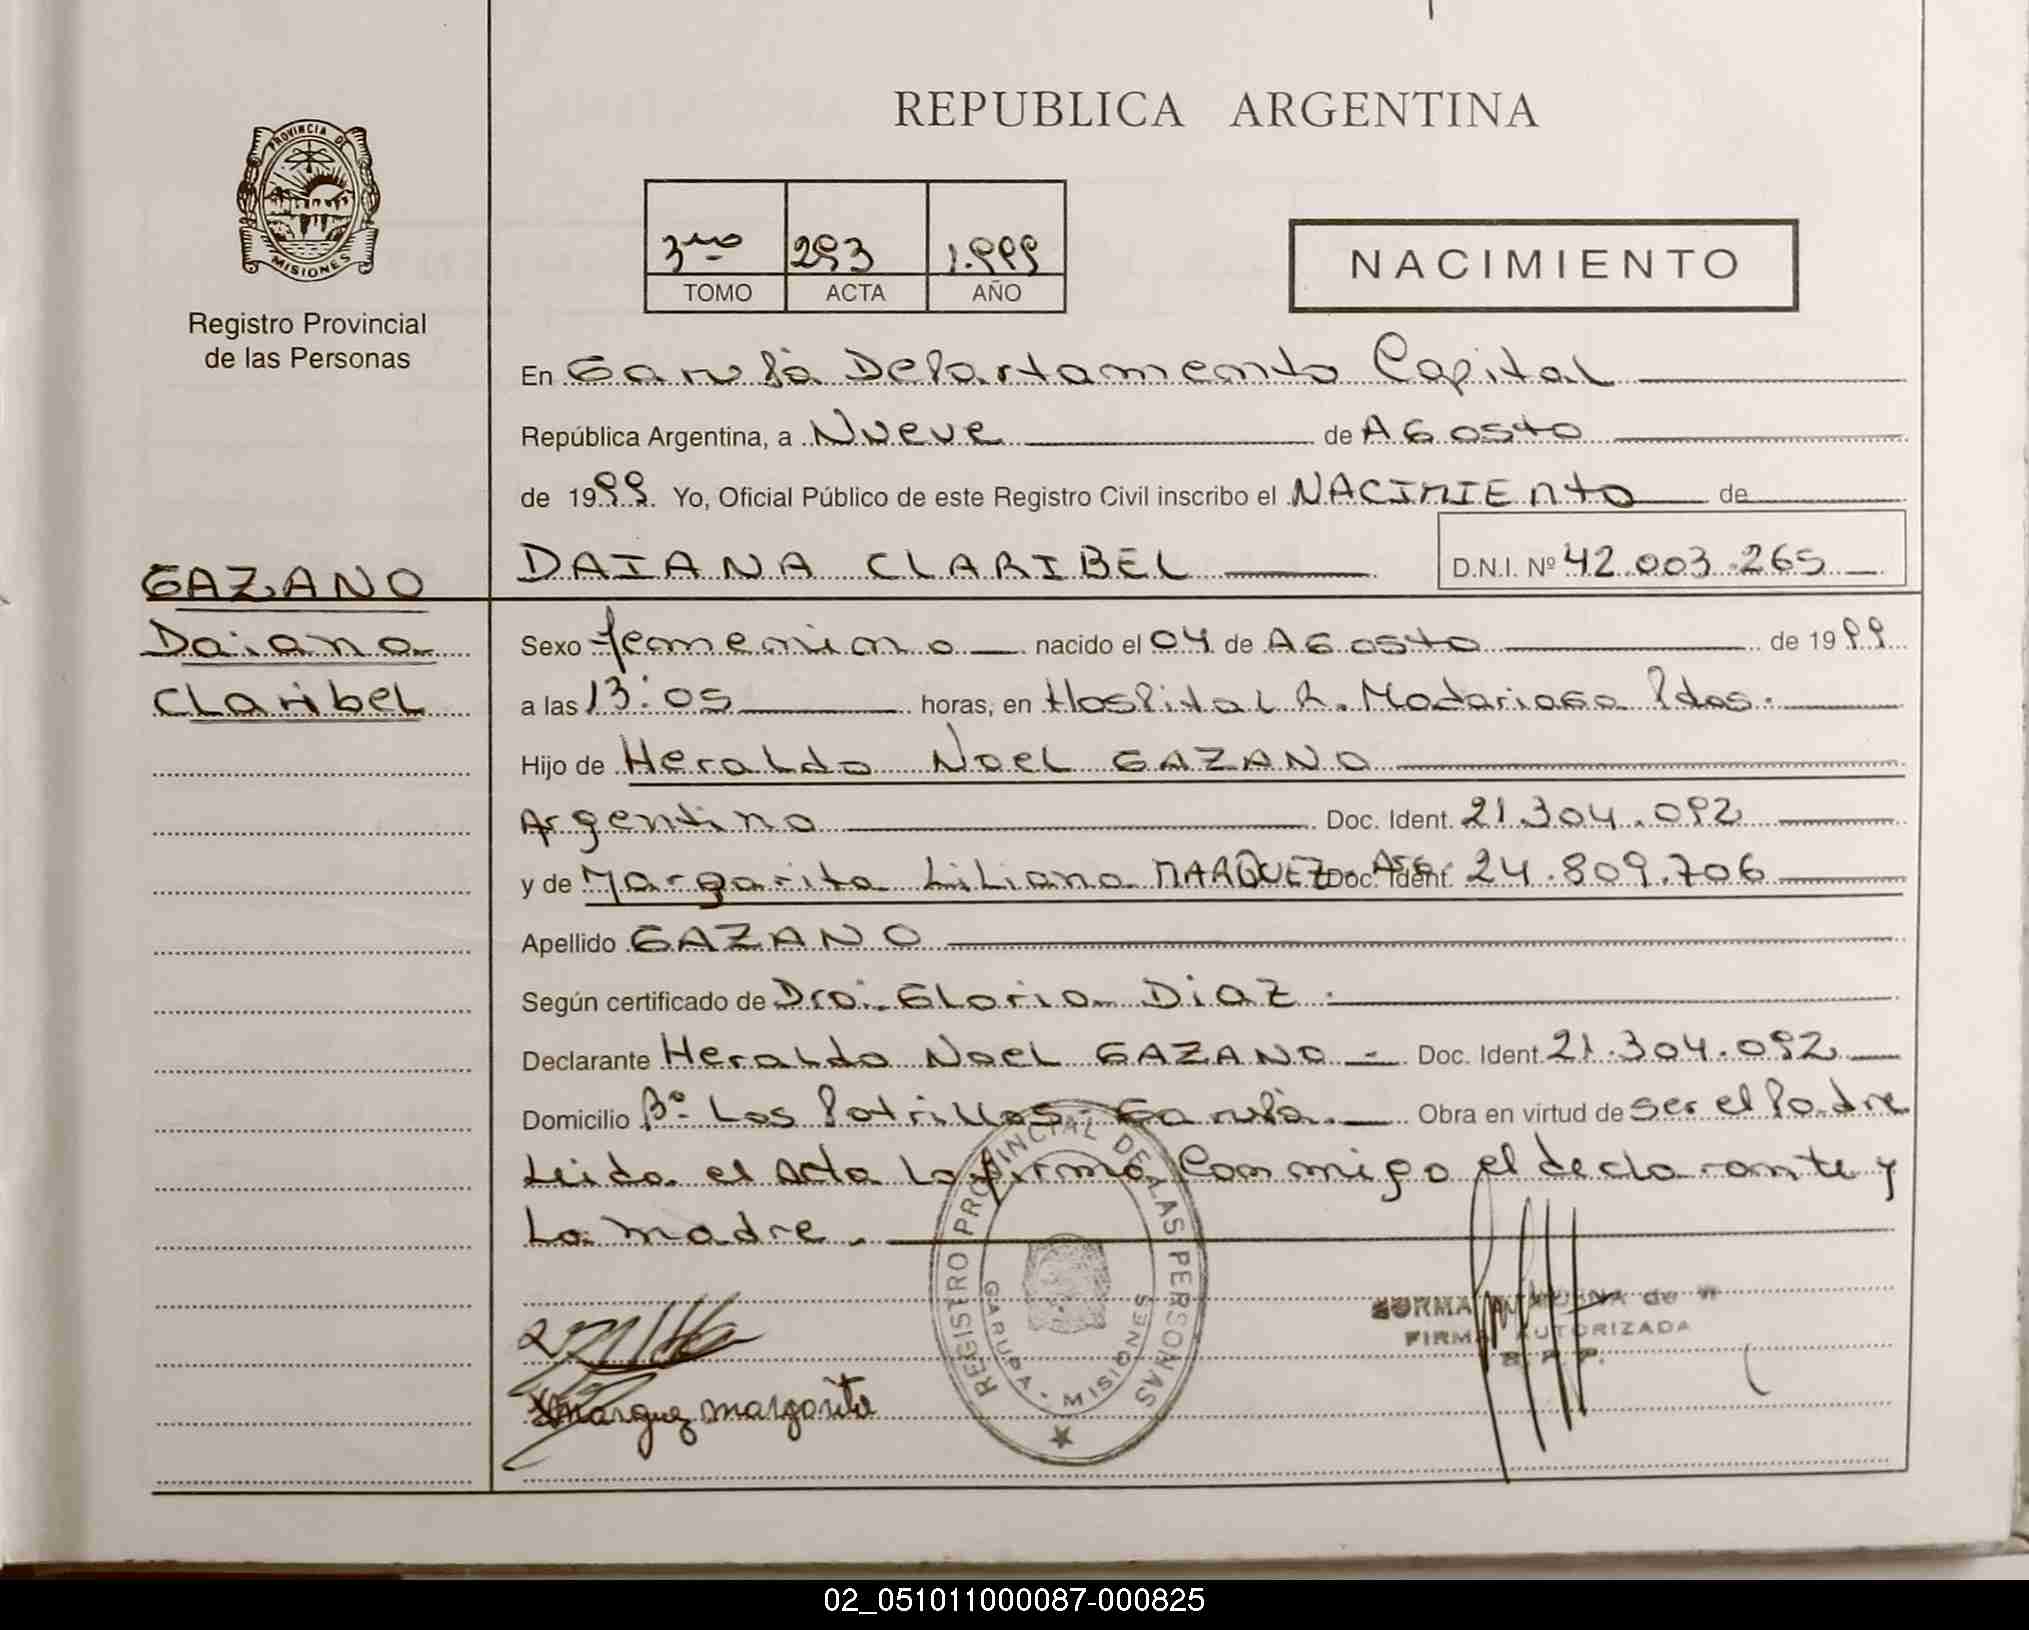 REPUBLICA ARGENTINA
PROVINCIA DE
MISIONES
Registro Provincial
de las Personas
3ro 293 1.999
TOMO ACTA AÑO
NACIMIENTO
En Garupá Departamento Capital
República Argentina, a Nueve de Agosto
de 1999. Yo, Oficial Público de este Registro Civil inscribo el NACIMIEnto de
DAIANA CLARIBEL D.N.I. Nº 42.003.265
GAZANO
Daiana
Claribel
Sexo femenino nacido el 04 de Agosto de 1999
a las 13:05 horas, en Hospital R. Madariaga Pdas.
Hijo de Heraldo Noel GAZANO
Argentino Doc. Ident. 21.304.092
y de Margarita Liliana MARQUEZ Arg. Doc. Ident. 24.809.706
Apellido GAZANO
Según certificado de Dra. Gloria Diaz.
Declarante Heraldo Noel GAZANO - Doc. Ident. 21.304.092
Domicilio Bº Los Potrillos - Garupá. Obra en virtud de ser el Padre
Leida el acta la firma Conmigo el declarante y
La madre.
REGISTRO PROVINCIAL DE LAS PERSONAS
GARUPA - MISIONES
FIRMA AUTORIZADA
R. P. P.
Marquez margarita
02_051011000087-000825